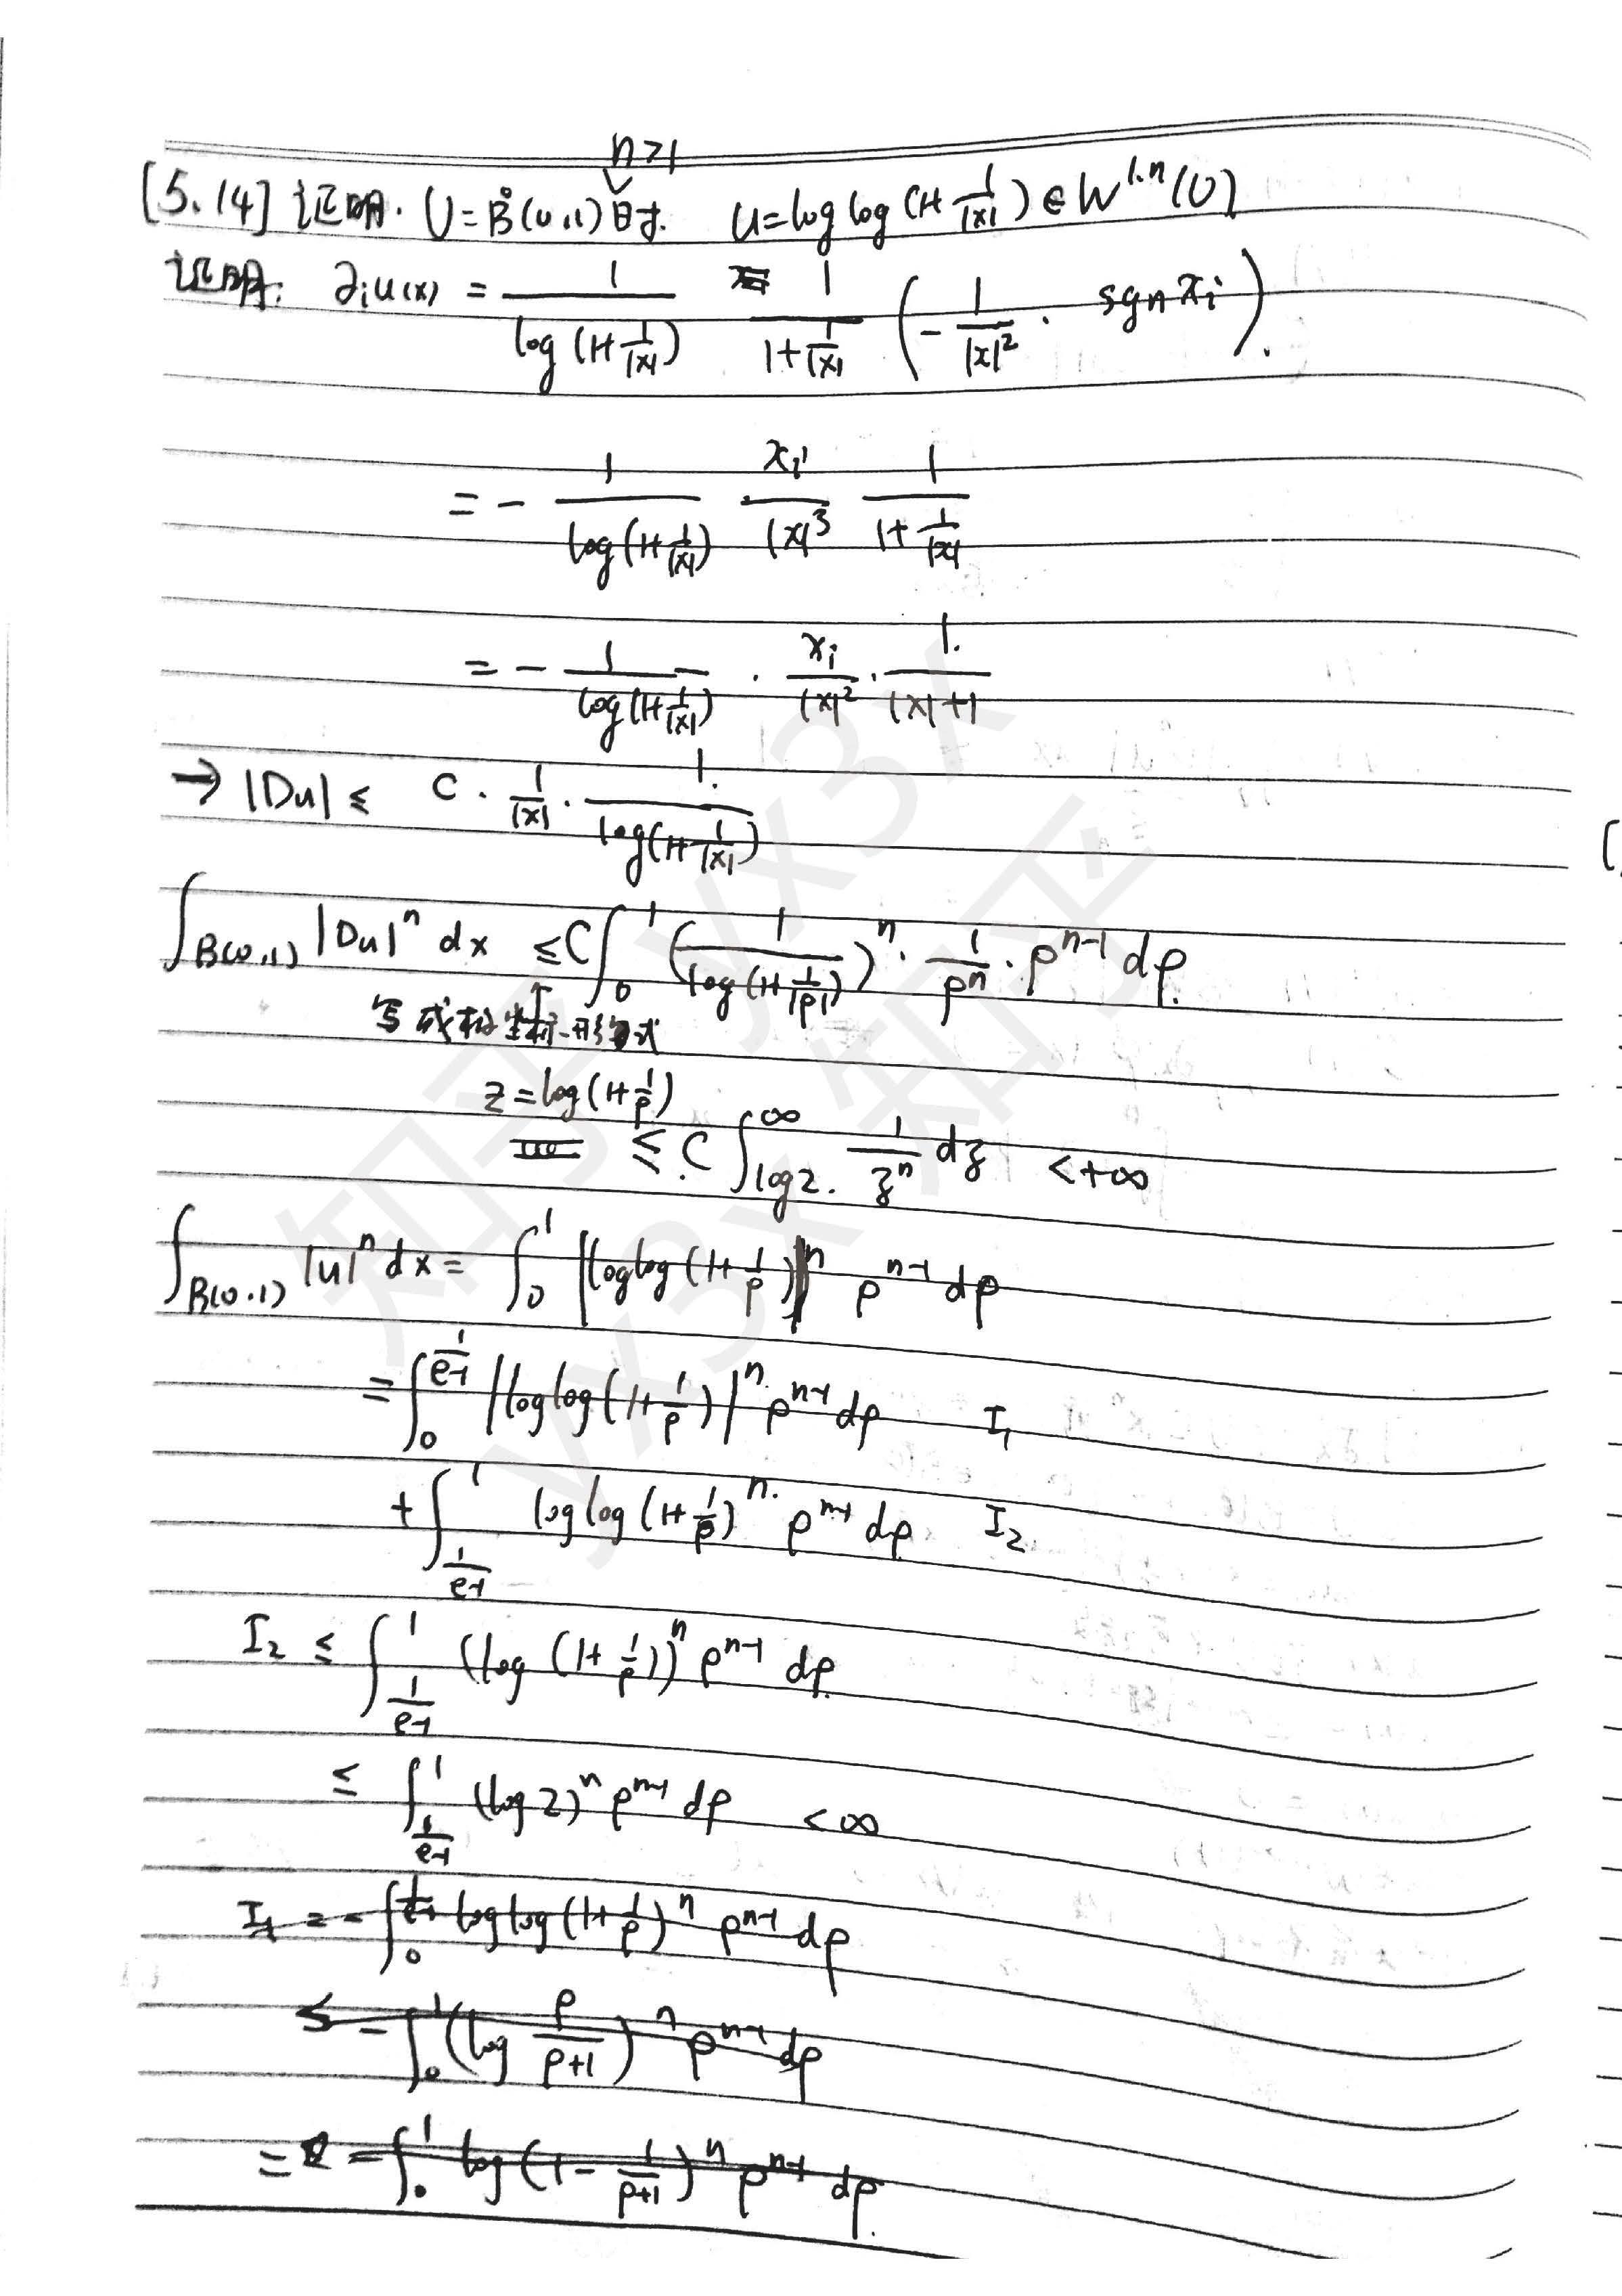 n>1
[5.14] 证明. U=B°(0,1)时. u=log log(1+1/|x|)∈W^{1,n}(U)
证明: ∂_i u(x) = 1/log(1+1/|x|) 1/(1+1/|x|) (-1/|x|^2 · sgn x_i).
= - 1/log(1+1/|x|) x_i/|x|^3 1/(1+1/|x|)
= - 1/log(1+1/|x|) · x_i/|x|^2 · 1/(|x|+1)
→ |Du| ≤ C · 1/|x| · 1/log(1+1/|x|)
∫_{B(0,1)} |Du|^n dx ≤ C∫_0^1 (1/log(1+1/|ρ|))^n · 1/ρ^n · ρ^{n-1} dρ.
↑
写成极坐标形式
z=log(1+1/ρ)
≤ C ∫_{log2}^∞ 1/z^n dz <+∞
∫_{B(0,1)} |u|^n dx = ∫_0^1 |log log(1+1/ρ)|^n ρ^{n-1} dρ
= ∫_0^{1/(e-1)} |log log(1+1/ρ)|^n ρ^{n-1} dρ I_1
+ ∫_{1/(e-1)}^1 log log(1+1/ρ)^n ρ^{n-1} dρ I_2
I_2 ≤ ∫_{1/(e-1)}^1 (log(1+1/ρ))^n ρ^{n-1} dρ
≤ ∫_{1/(e-1)}^1 (log2)^n ρ^{n-1} dρ <∞
I_1 = - ∫_0^{1/(e-1)} log log(1+1/ρ)^n ρ^{n-1} dρ
≤ - ∫_0^1 (log ρ/(ρ+1))^n ρ^{n-1} dρ
= - ∫_0^1 log(1-1/(ρ+1))^n ρ^{n-1} dρ.
知乎 yx3x
知乎
yx3x